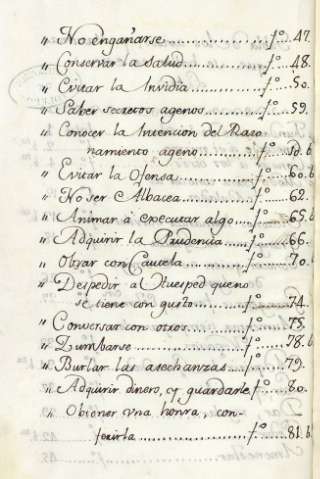 " No engañarse........fº 47.
" Conservar la salud......fº 48.
" Evitar la Invidia......fº 50.
" Saber secretos agenos......fº 59.
" Conocer la Intencion del Razo
namiento ageno......fº 59. b
" Evitar la Ofensa......fº 60. b
" No ser Albacea......fº 62.
" Animar à executar algo....fº 65. b
" Adquirir la Prudencia....fº 66.
" Obrar con Cautela......fº 70. b
" Despedir al Huesped queno
se tiene con gusto......fº 74.
" Conversar con otros......fº 75.
" Zumbarse......fº 78. b
" Burlar las asechanzas....fº 79.
" Adquirir dinero, y guardarle fº 80.
" Obtener vna honra, con-
ferirla......fº 81. b